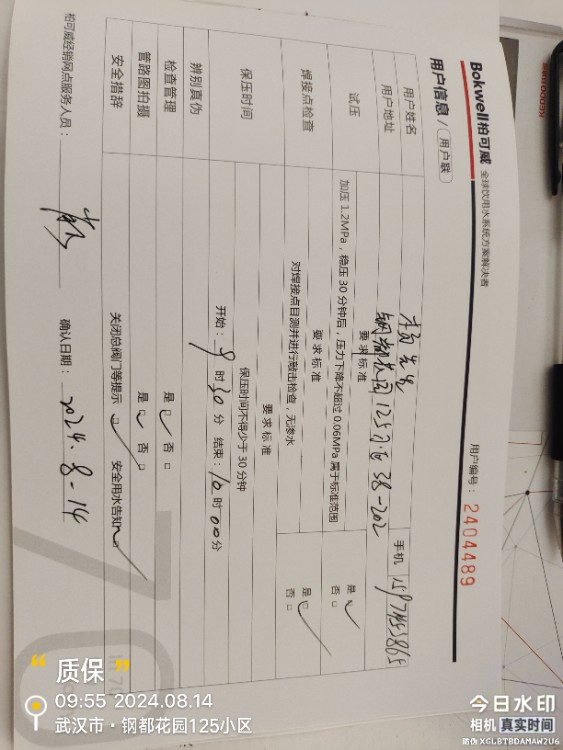 Bokwell柏可威 全球饮用水系统方案解决者
用户编号：2404489
用户信息/用户联
用户姓名 先生
手机
用户地址 钢都花园125小区38-202
试压
要求标准
加压1.2MPa，稳压30分钟后，压力下降不超过0.06MPa属于标准范围
是 否
焊接点检查
要求标准
对焊接点目测并进行敲击检查，无渗水
是 否
保压时间
要求标准
保压时间不得少于30分钟
开始：9时30分 结束：10时00分
辨别真伪
检查管理 是 否
管路图拍摄 是 否
安全措辞 关闭总阀门等提示 安全用水告知
柏可威经销网点服务人员：
确认日期：2024.8-14
质保
09:55 2024.08.14
武汉市·钢都花园125小区
今日水印
相机 真实时间
防伪 XGLBTBDAMAW2U6